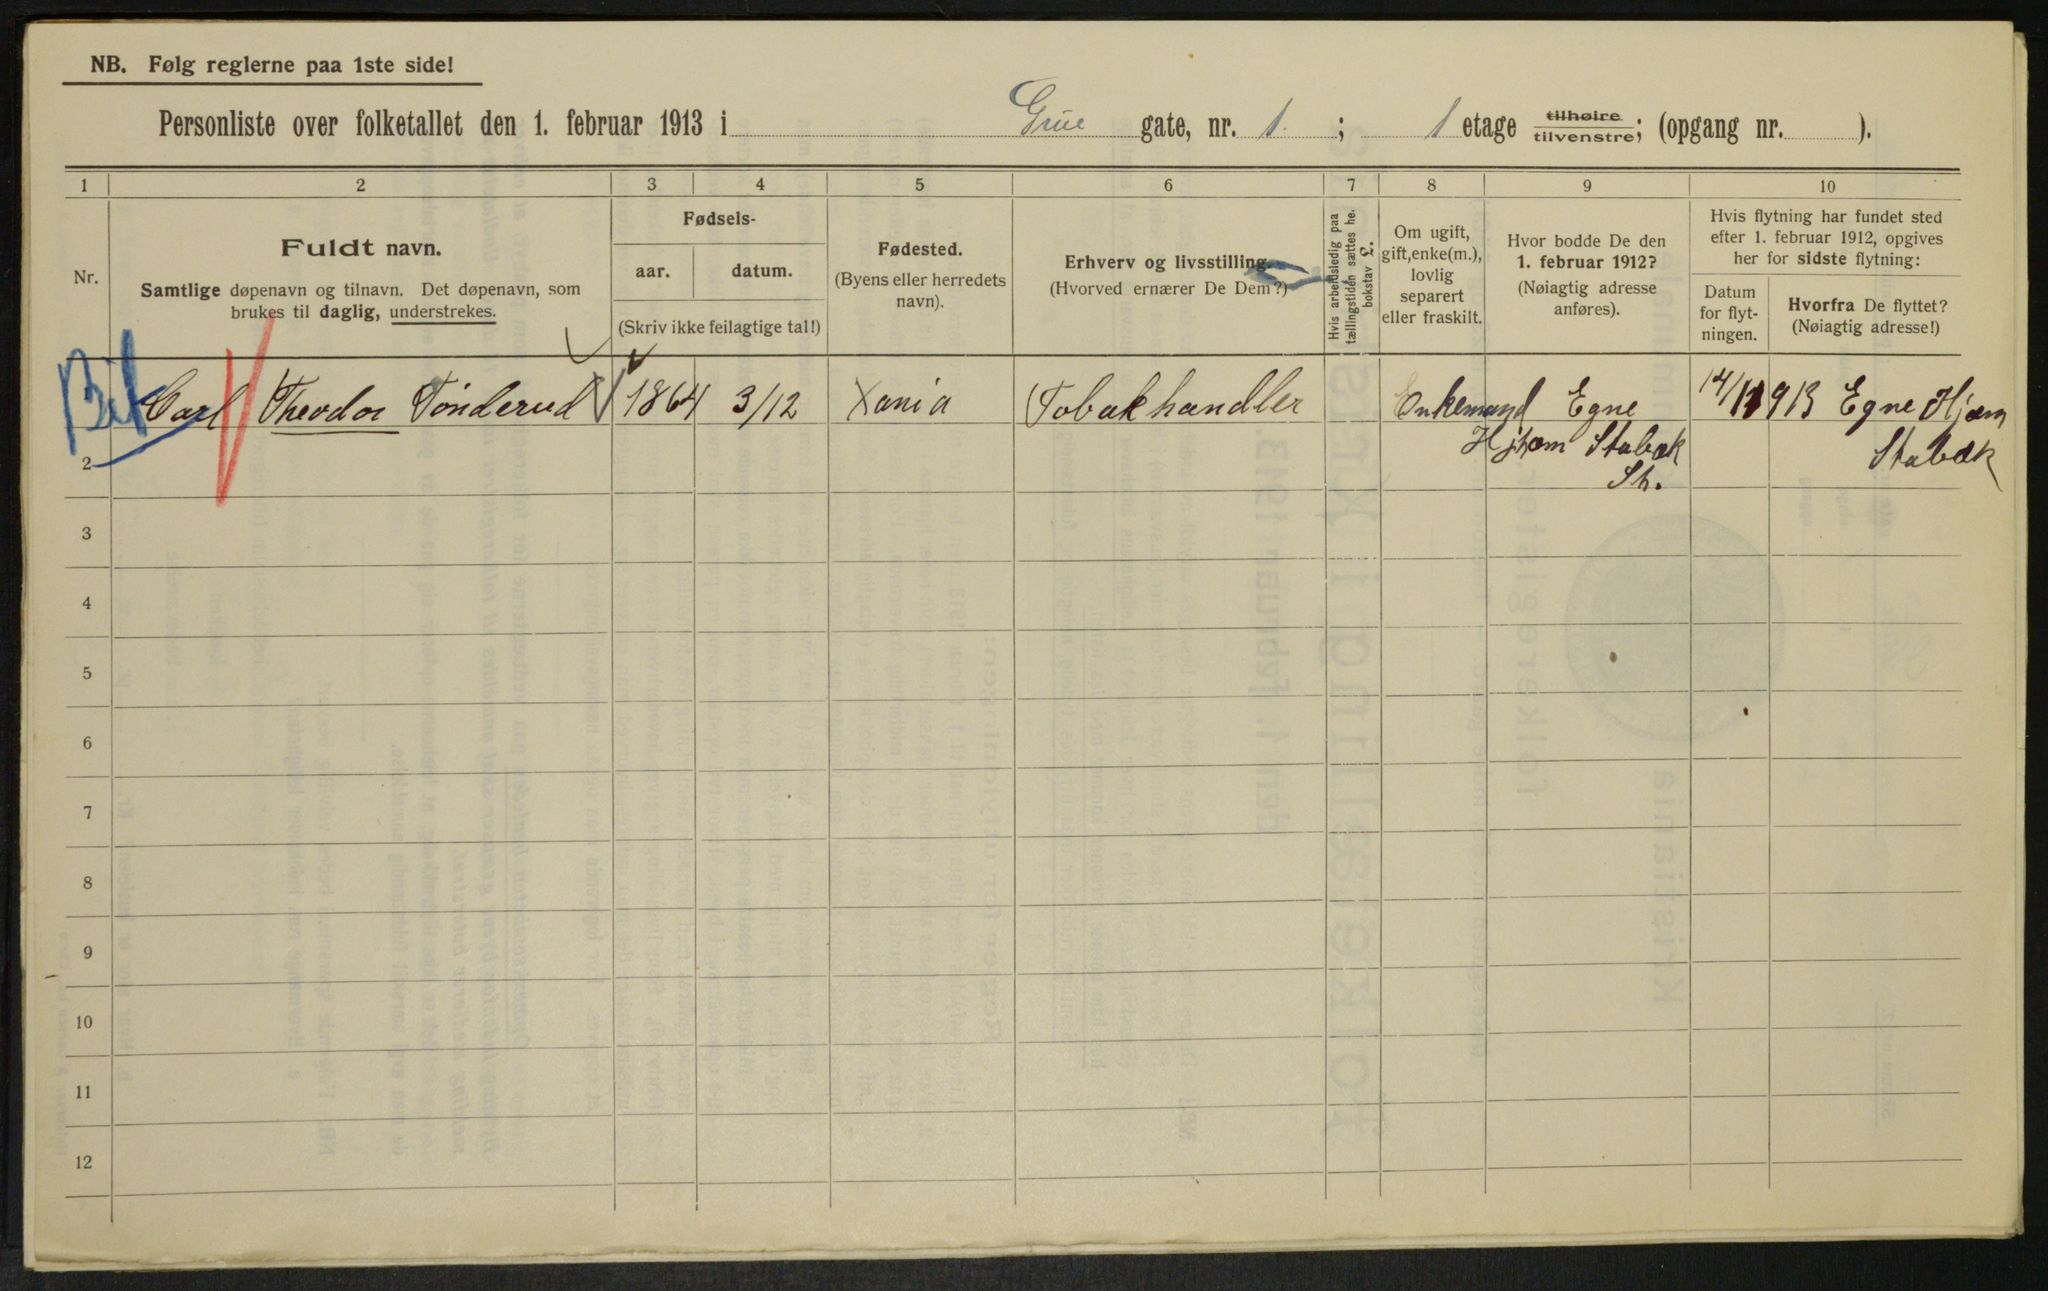 NB. Følg reglerne paa 1ste side!
Personliste over folketallet den 1. februar 1913 i Grüe gate, nr. 1. ; 1 etage tilhøire tilvenstre; (opgang nr. ).
1 2 3 4 5 6 7 8 9 10
Nr.
Fuldt navn.
Samtlige døpenavn og tilnavn. Det døpenavn, som
brukes til daglig, understrekes.
Fødsels-
aar. datum.
(Skriv ikke feilagtige tal!)
Fødested.
(Byens eller herredets
navn).
Erhverv og livsstilling.
(Hvorved ernærer De Dem?)
Hvis arbeidsledig paa
tællingstiden sættes he.
bokstav £.
Om ugift,
gift,enke(m.),
lovlig
separert
eller fraskilt.
Hvor bodde De den
1. februar 1912?
(Nøiagtig adresse
anføres).
Hvis flytning har fundet sted
efter 1. februar 1912, opgives
her for sidste flytning:
Datum
for flyt-
ningen.
Hvorfra De flyttet?
(Nøiagtig adresse!)
Carl Theodor Tönderud 1864 3/12 Xania Tobakhandler Enkemand Egne 14/1 1913 Egne Hjem
Hjem Stabæk Stabæk
St.
2
3
4
5
6
7
8
9
10
11
12